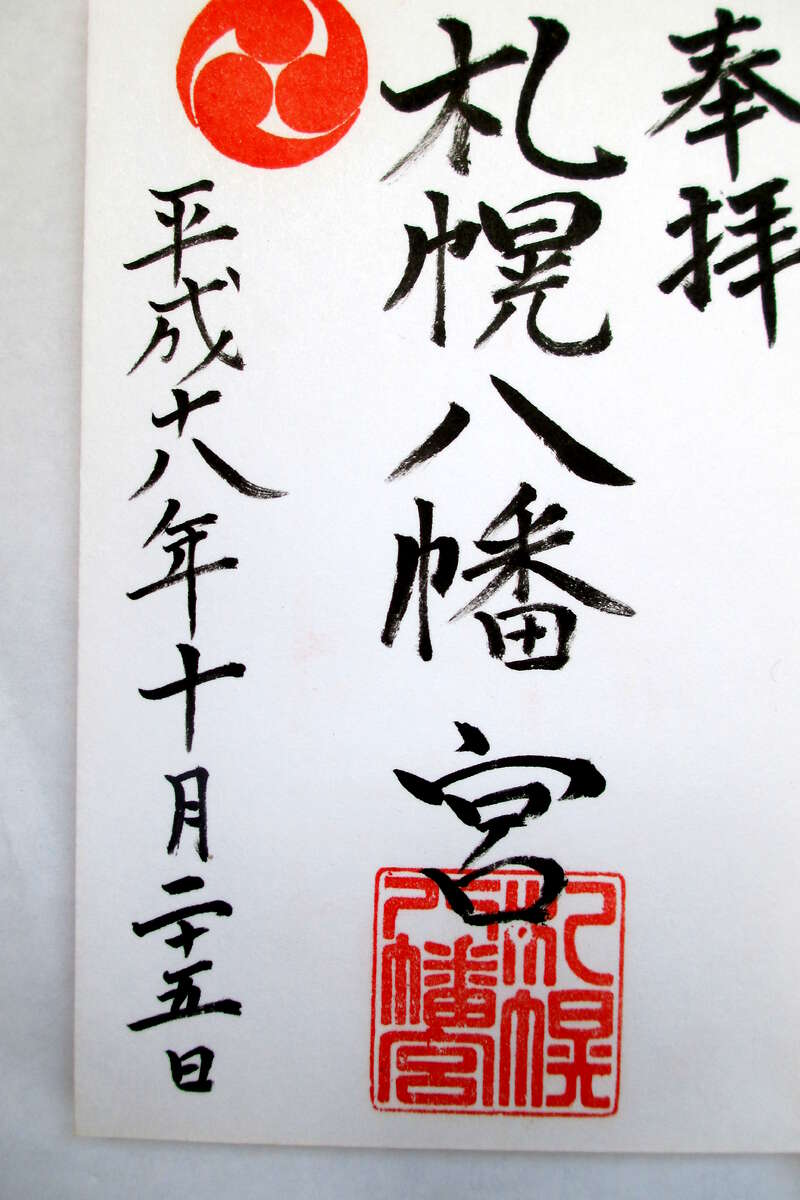 奉拝
札幌八幡宮
平成十八年十月二十五日
札幌
八幡宮